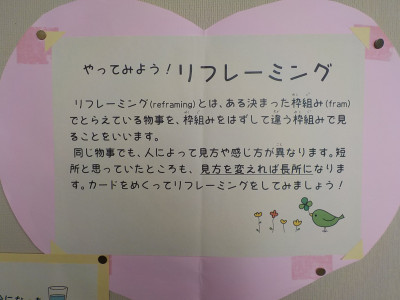 やってみよう！リフレーミング
リフレーミング(reframing)とは、ある決まった枠組み(fram)
でとらえている物事を、枠組みをはずして違う枠組みで見
ることをいいます。
同じ物事でも、人によって見方や感じ方が異なります。短
所と思っていたところも、見方を変えれば長所になりま
す。カードをめくってリフレーミングをしてみましょう！